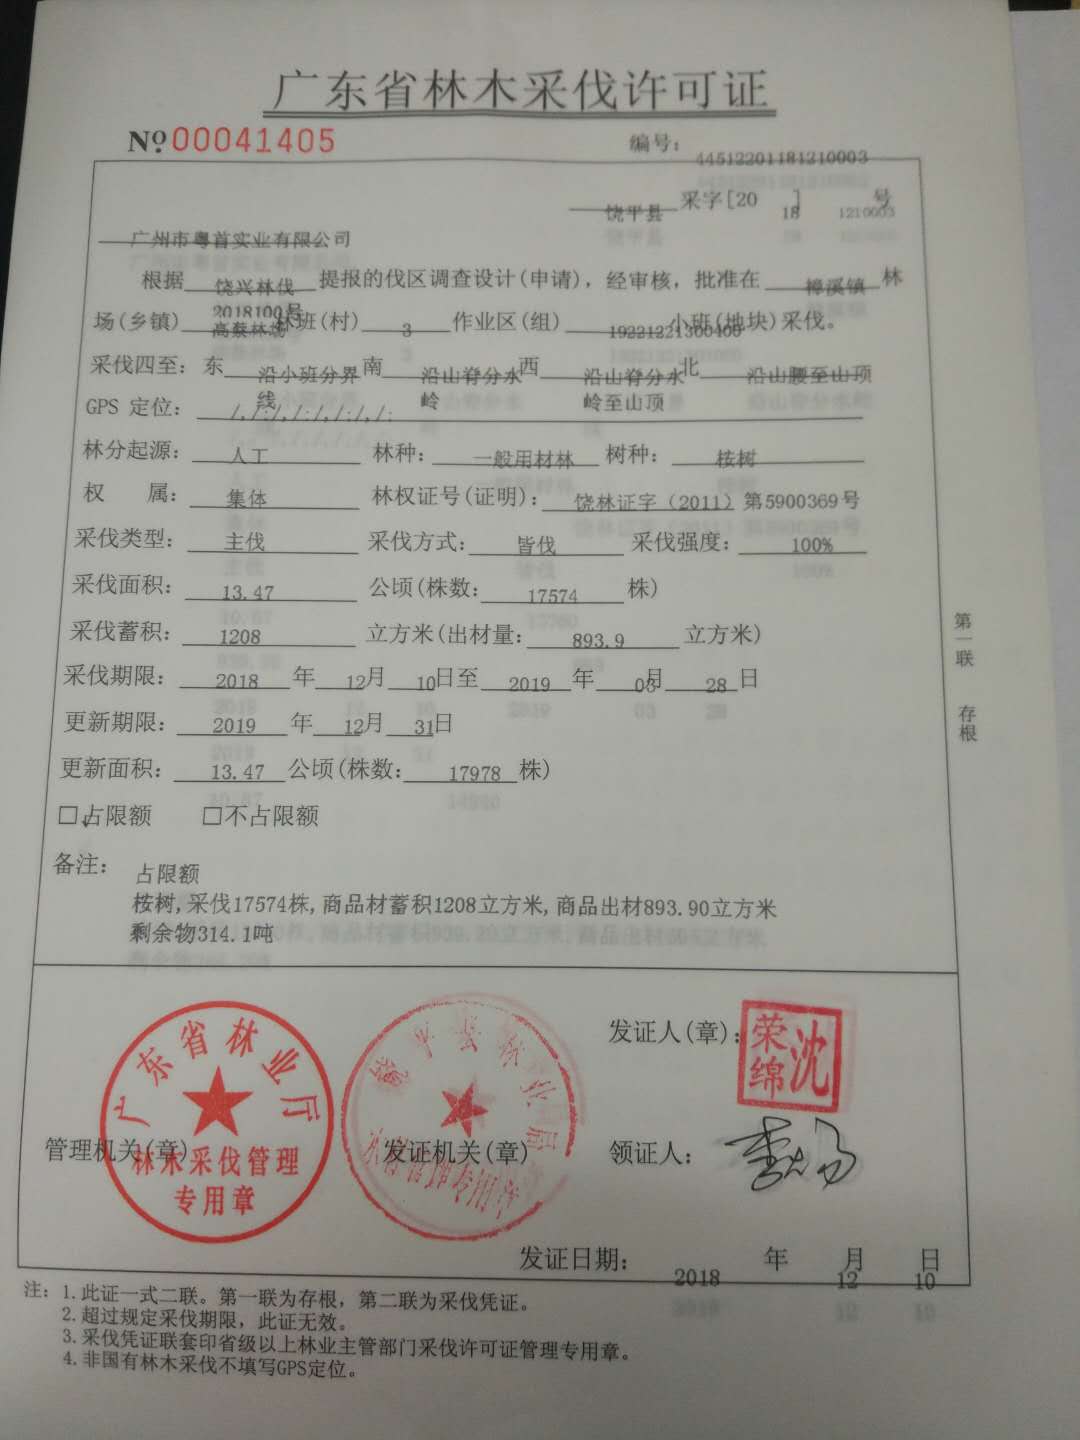 广东省林木采伐许可证
№ 00041405 编号: 44512201181210003
饶平县 采字[20 18 ] 1210003 号
广州市粤首实业有限公司
根据 饶兴林伐2018100号 提报的伐区调查设计(申请), 经审核, 批准在 樟溪镇 林
场(乡镇) 高蔡林场 林班(村) 3 作业区(组) 19221221300400 小班(地块)采伐。
采伐四至: 东 沿小班分界线 南 沿山脊分水岭 西 沿山脊分水岭至山顶 北 沿山腰至山顶
GPS 定位: /,/:/,/:/,/:/,/:
林分起源: 人工 林种: 一般用材林 树种: 桉树
权 属: 集体 林权证号(证明): 饶林证字（2011）第5900369号
采伐类型: 主伐 采伐方式: 皆伐 采伐强度: 100%
采伐面积: 13.47 公顷(株数: 17574 株)
采伐蓄积: 1208 立方米(出材量: 893.9 立方米)
采伐期限: 2018 年 12 月 10 日至 2019 年 03 月 28 日
更新期限: 2019 年 12 月 31 日
更新面积: 13.47 公顷(株数: 17978 株)
□占限额 □不占限额
备注: 占限额
桉树,采伐17574株,商品材蓄积1208立方米,商品出材893.90立方米
剩余物314.1吨
第一联 存根
广东省林业厅
林木采伐管理
专用章
管理机关(章)
饶平县林业局
发证机关(章)
发证人(章):
沈荣绵
领证人:
发证日期: 2018 年 12 月 10 日
注: 1.此证一式二联。第一联为存根, 第二联为采伐凭证。
2.超过规定采伐期限, 此证无效。
3.采伐凭证联套印省级以上林业主管部门采伐许可证管理专用章。
4.非国有林木采伐不填写GPS定位。